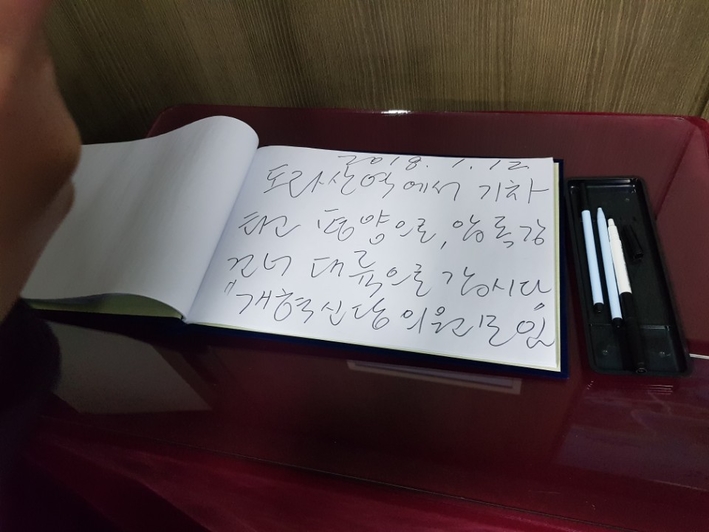 2018. 1. 12
도라산역에서 기차
타고 평양으로, 압록강
건너 대륙으로 갑시다
"개혁신당 의원모임"